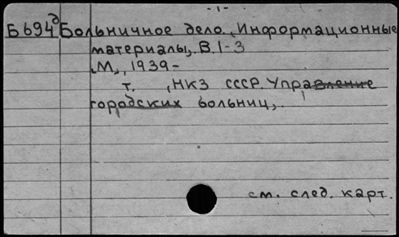 -1-
Б694д Больничное дело. Информационные
материалы, В.1-3
М., 1939-
т. , НКЗ СССР. Управление
городских больниц,.
см. след. карт.